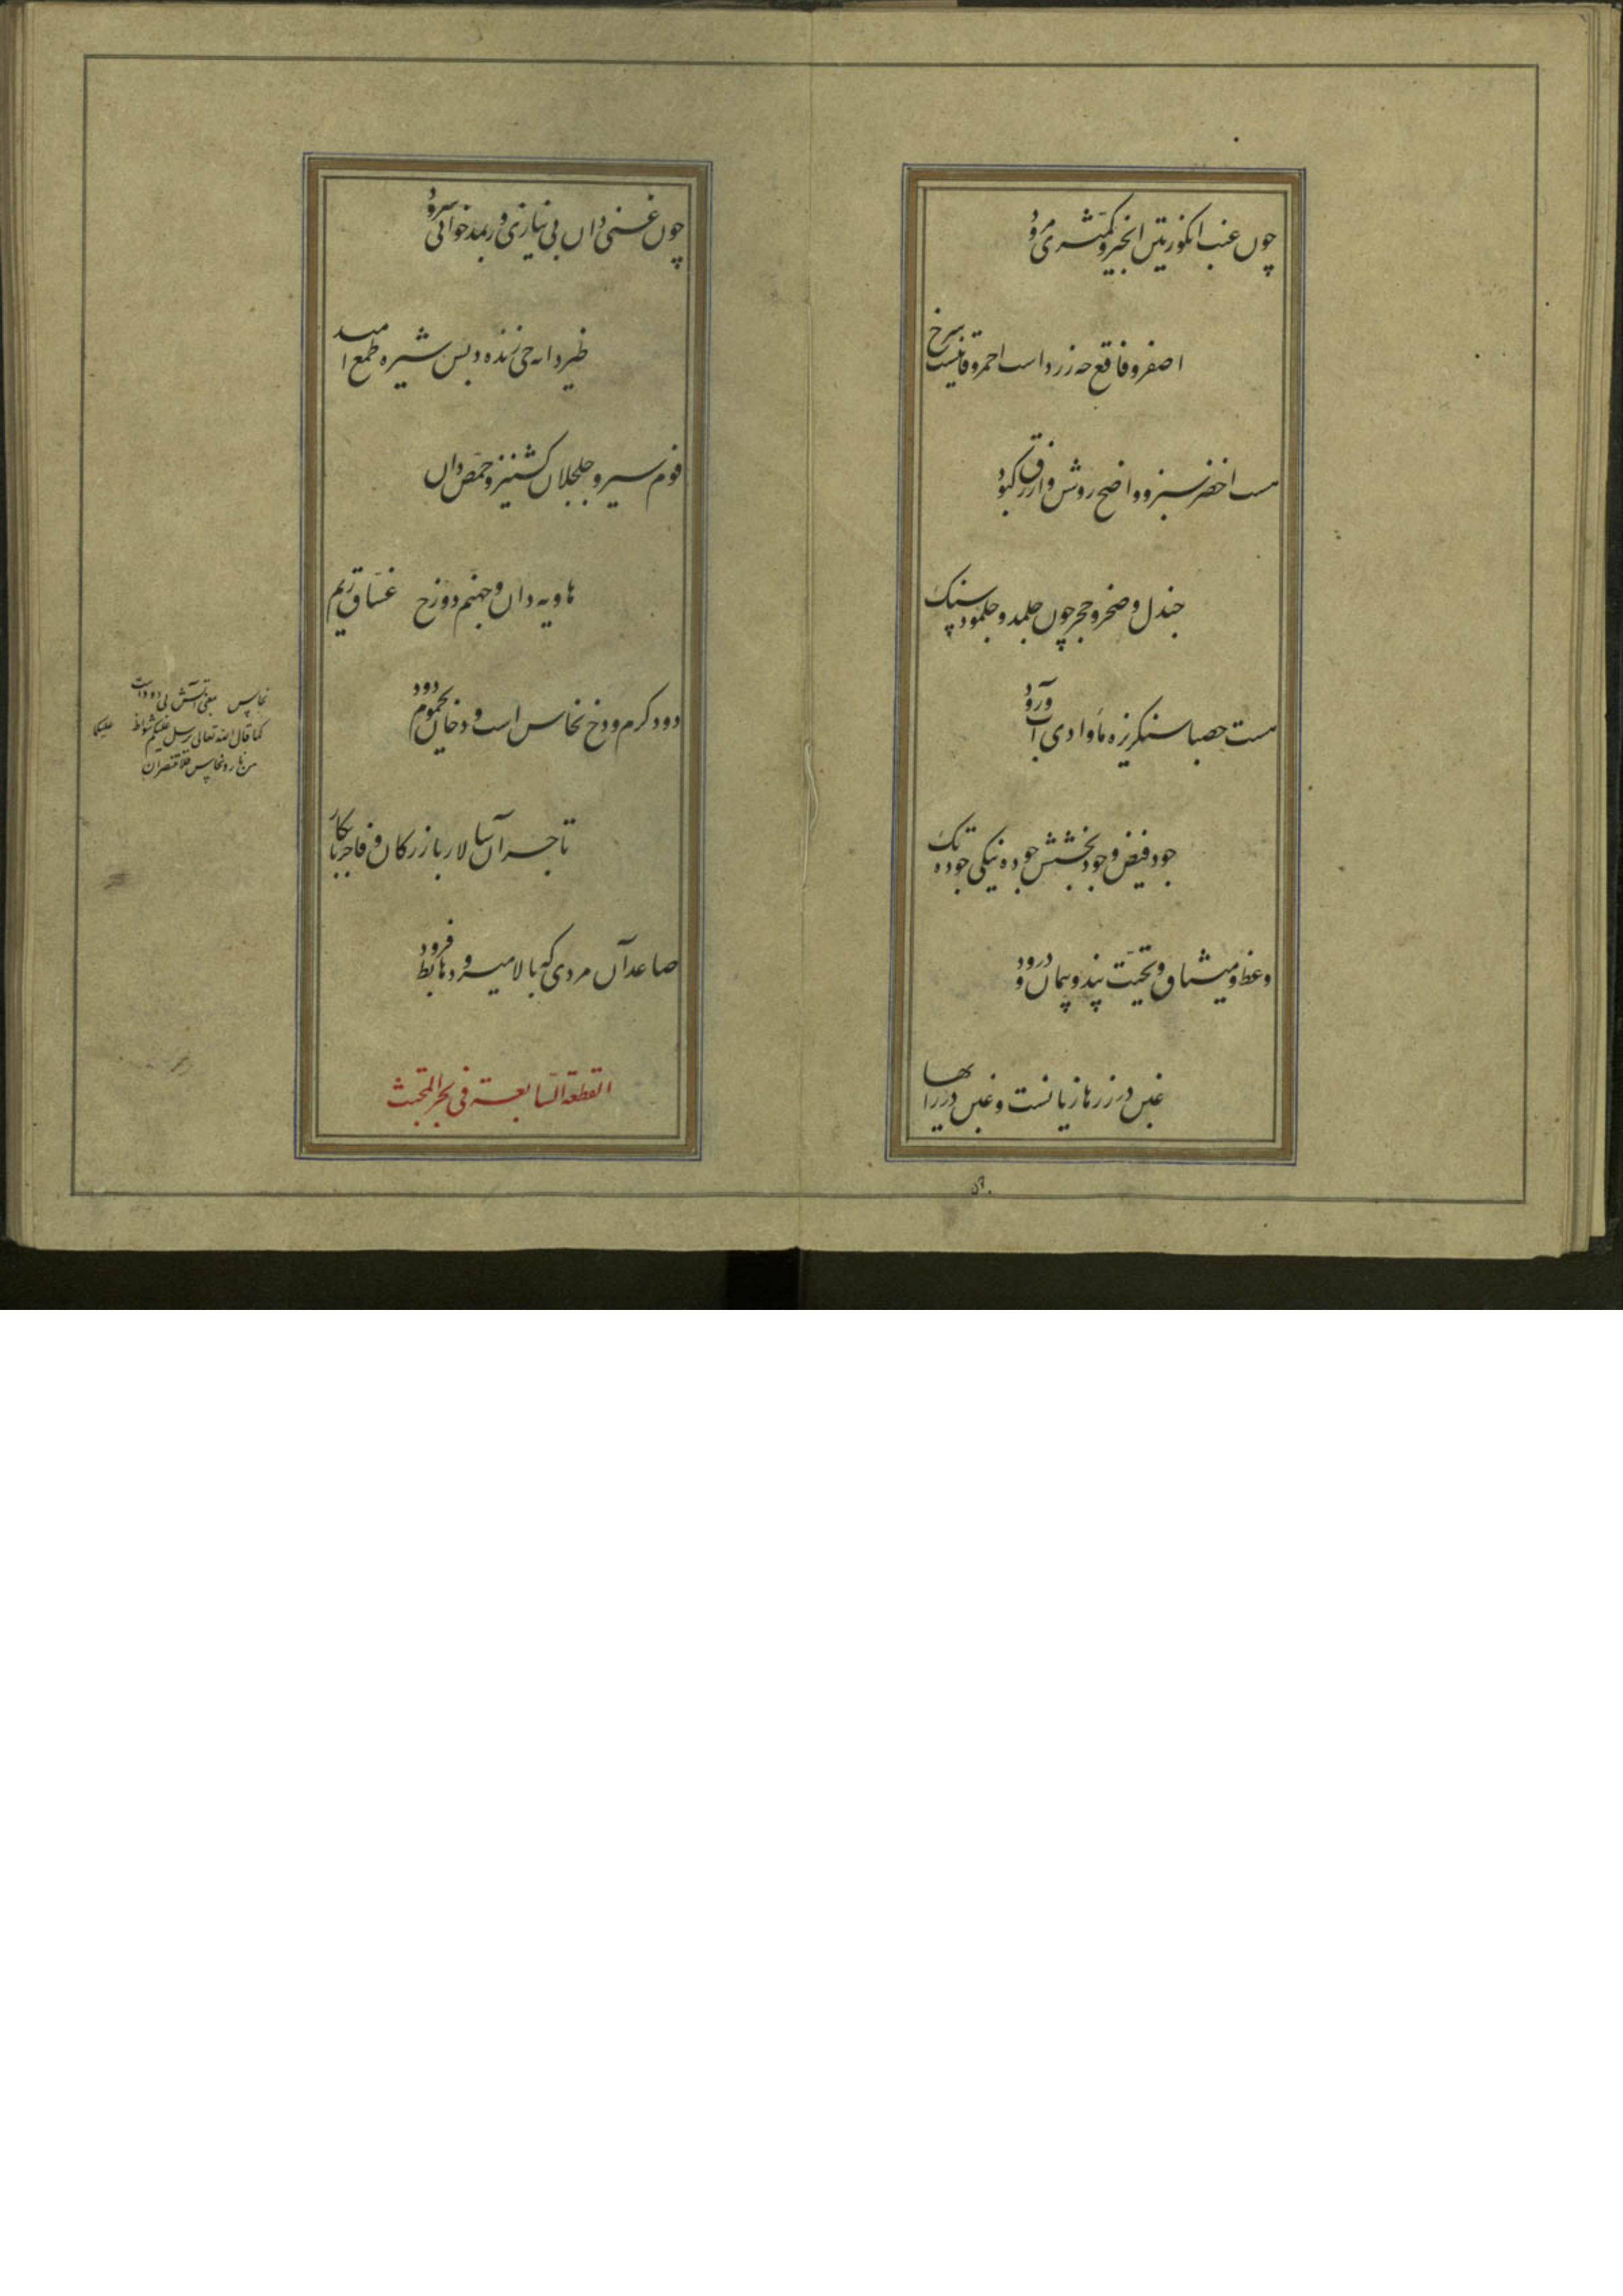 چون عنب انکور تین انجیر و کمثری مرود
اصفر و فاقع چه زرد است احمر و قانیست سرخ
هست اخضر سبز و واضح روشن و ازرق کبود
جندل و صخر و حجر چون جلمد و جلمود سنک
هست حصبا سنکریزه ماء وادی آب ورود
جود فیض و جود بخشش جوده نیکی جوده تک
وعظ و میثاق و تحیت پند و پیمان و درود
غبن در زرها زیانست و غبن در رایها
چون غنی دان بی نیازی ور بمد خوانی سرود
طیر دان حی زنده دبس شیره طمع امید
فوم سیر و جلجلان کشنیز و حمص دان
هاویه دان و جهنم دوزخ غساق ریم
دود کرم و دخ نحاس است و دخان یحموم دود
تاجر آن سالار بازرکان و فاجر نابکار
صاعد آن مردی که بالا میرود هابط فرود
القطعة السابعة فی بحر المجتث
نحاس یعنی آتش بی دود است
کما قال الله تعالی یرسل علیکما شواظ
من نار و نحاس فلا تنتصران